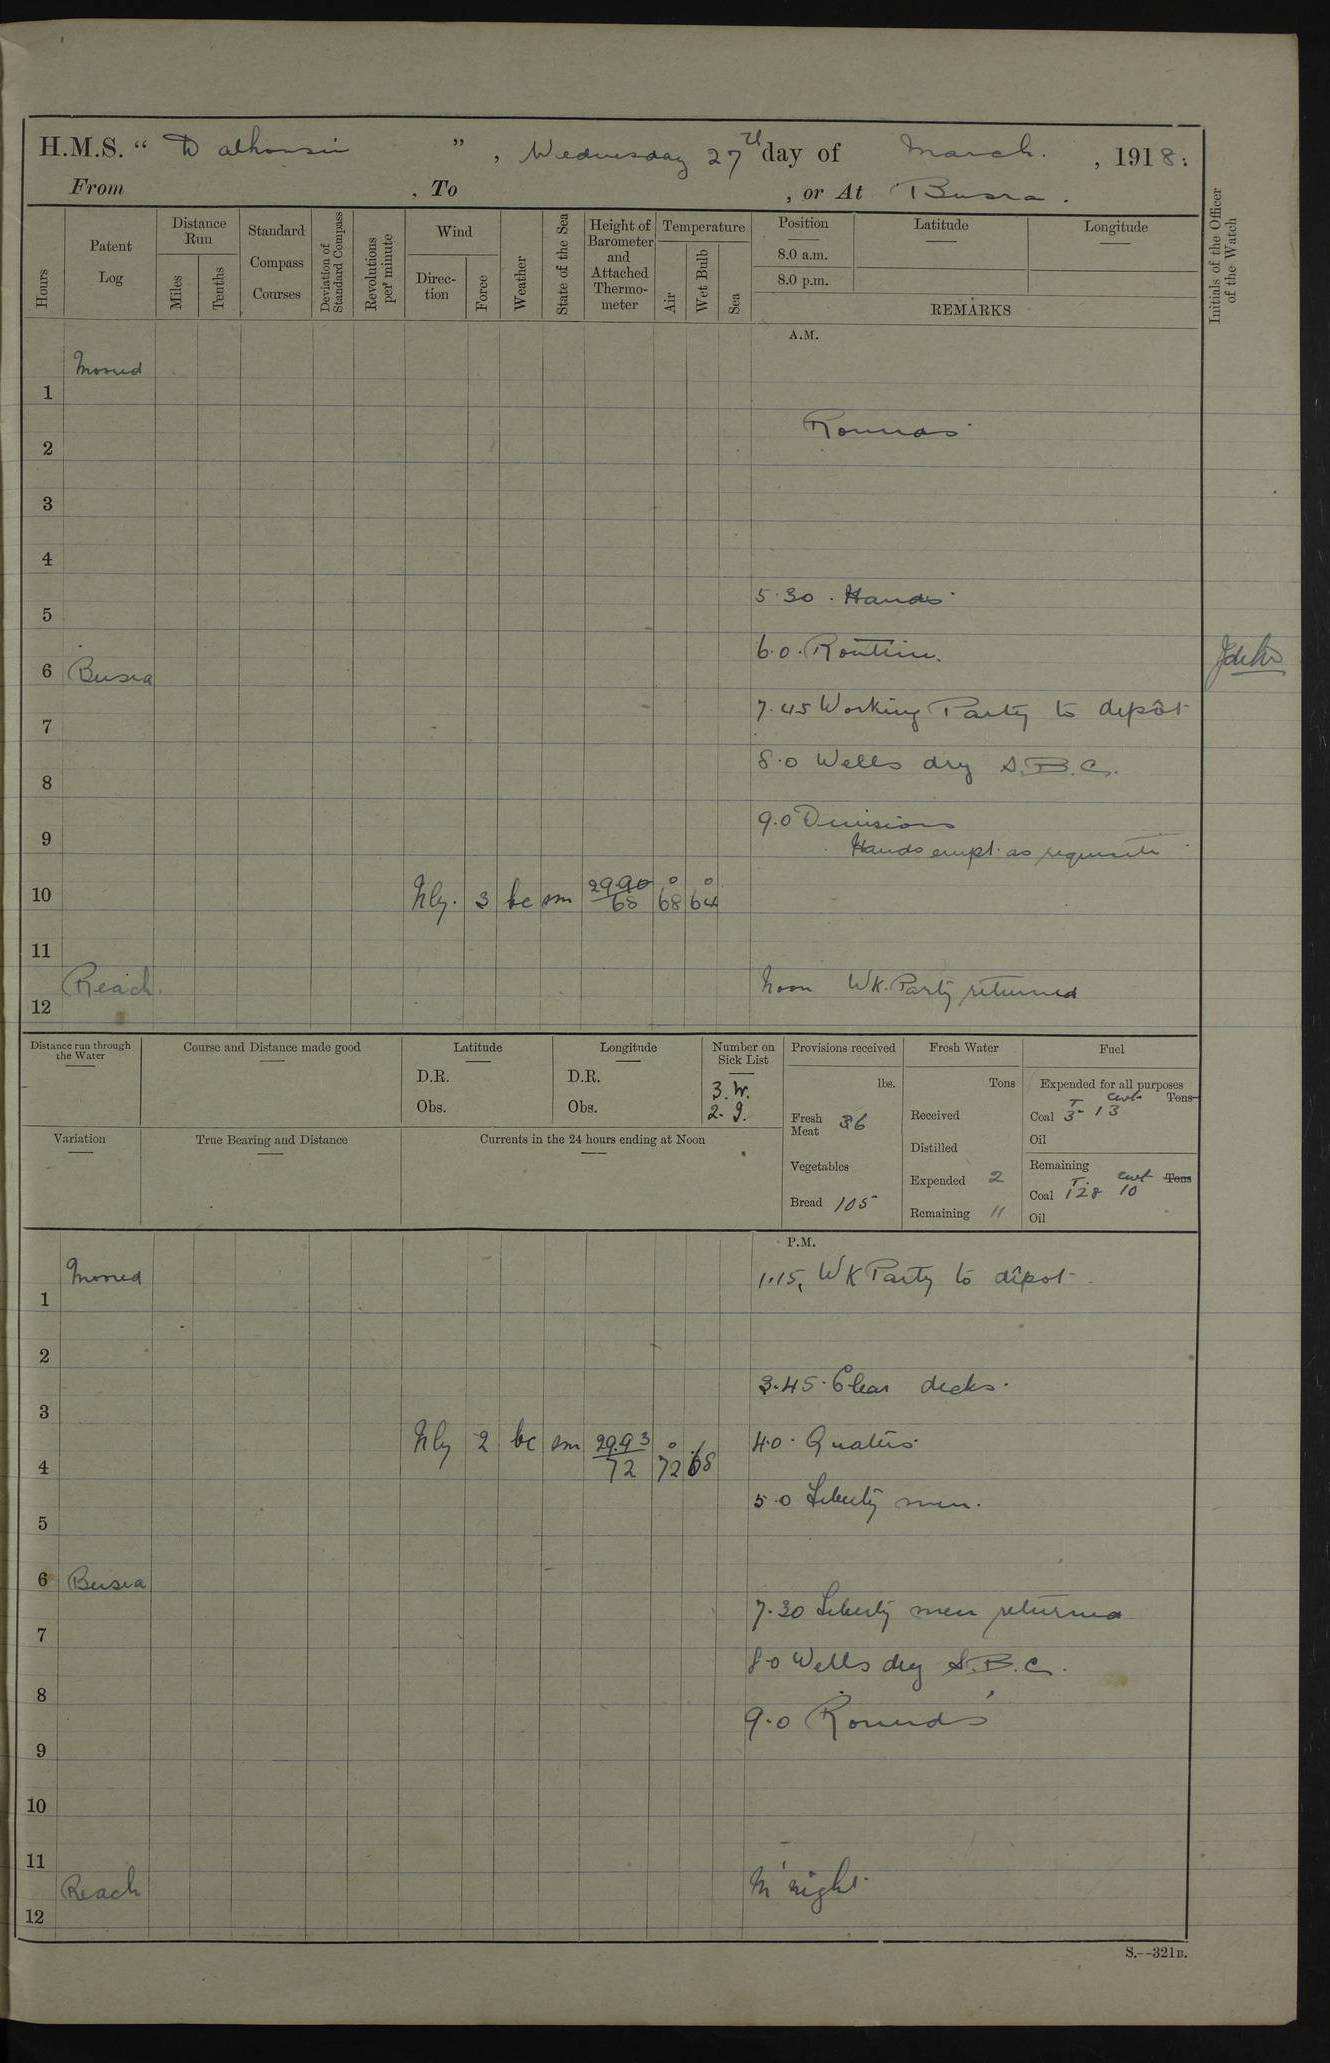 H.M.S. “ Dalhousie ” , Wednesday 27th day of March. , 1918.
From , To , or At Busra .
Hours
Patent Log
Distance Run
Miles
Tenths
Standard Compass Courses
Deviation of Standard Compass
Revolutions per minute
Wind
Direc-tion
Force
Weather
State of the Sea
Height of Barometer and Attached Thermo-meter
Temperature
Air
Wet Bulb
Sea
Position
8.0 a.m.
8.0 p.m.
Latitude
Longitude
REMARKS
Initials of the Officer of the Watch
A.M.
Moored
1
Rounds
2
3
4
5.30 . Hands
5
6.0 . Routine.
6 Busra
7.45 Working Party to depôt
7
8.0 Wells dry S.B.C.
8
9.0 Divisions
9 Hands empt. as requisite
10 Nly. 3 bc sm 29.90 68 68° 64°
11
Reach. Noon WK. Party returned
12
Distance run through the Water
Course and Distance made good
Latitude
D.R.
Obs.
Longitude
D.R.
Obs.
Number on Sick List
3. W.
2. 9.
Provisions received
lbs.
Fresh Meat 36
Vegetables
Bread 105
Fresh Water
Tons
Received
Distilled
Expended 2
Remaining 11
Fuel
Expended for all purposes
T cwt Tons
Coal 3 - 13
Oil
Remaining
T. cwt Tons
Coal 128 10
Oil
Variation
True Bearing and Distance
Currents in the 24 hours ending at Noon
P.M.
Moored 1.15, WK Party to dîpot
1
2
3.45 . Clear decks.
3
Nly 2 bc sm 29.93 72 72° 68 4.0 . Quaters
4
5.0 Liberty men.
5
6 Busra
7.30 Liberty men returned
7
8.0 Wells dry S.B.C.
8
9.0 Rounds
9
10
11
Reach M'night
12
S.--321B.